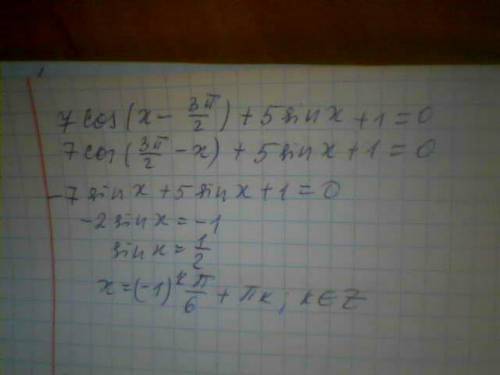 7cos(x - 3π/2) + 5sinx + 1 = 0
7cos(3π/2 - x) + 5sinx + 1 = 0
-7sinx + 5sinx + 1 = 0
-2sinx = -1
sinx = 1/2
x = (-1)^k π/6 + πk; k∈Z